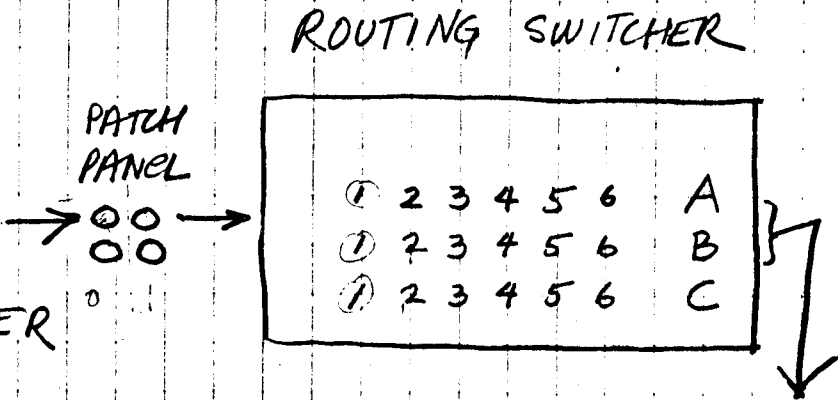 ROUTING SWITCHER
PATCH
PANEL
1 2 3 4 5 6 A
1 2 3 4 5 6 B
1 2 3 4 5 6 C
ER